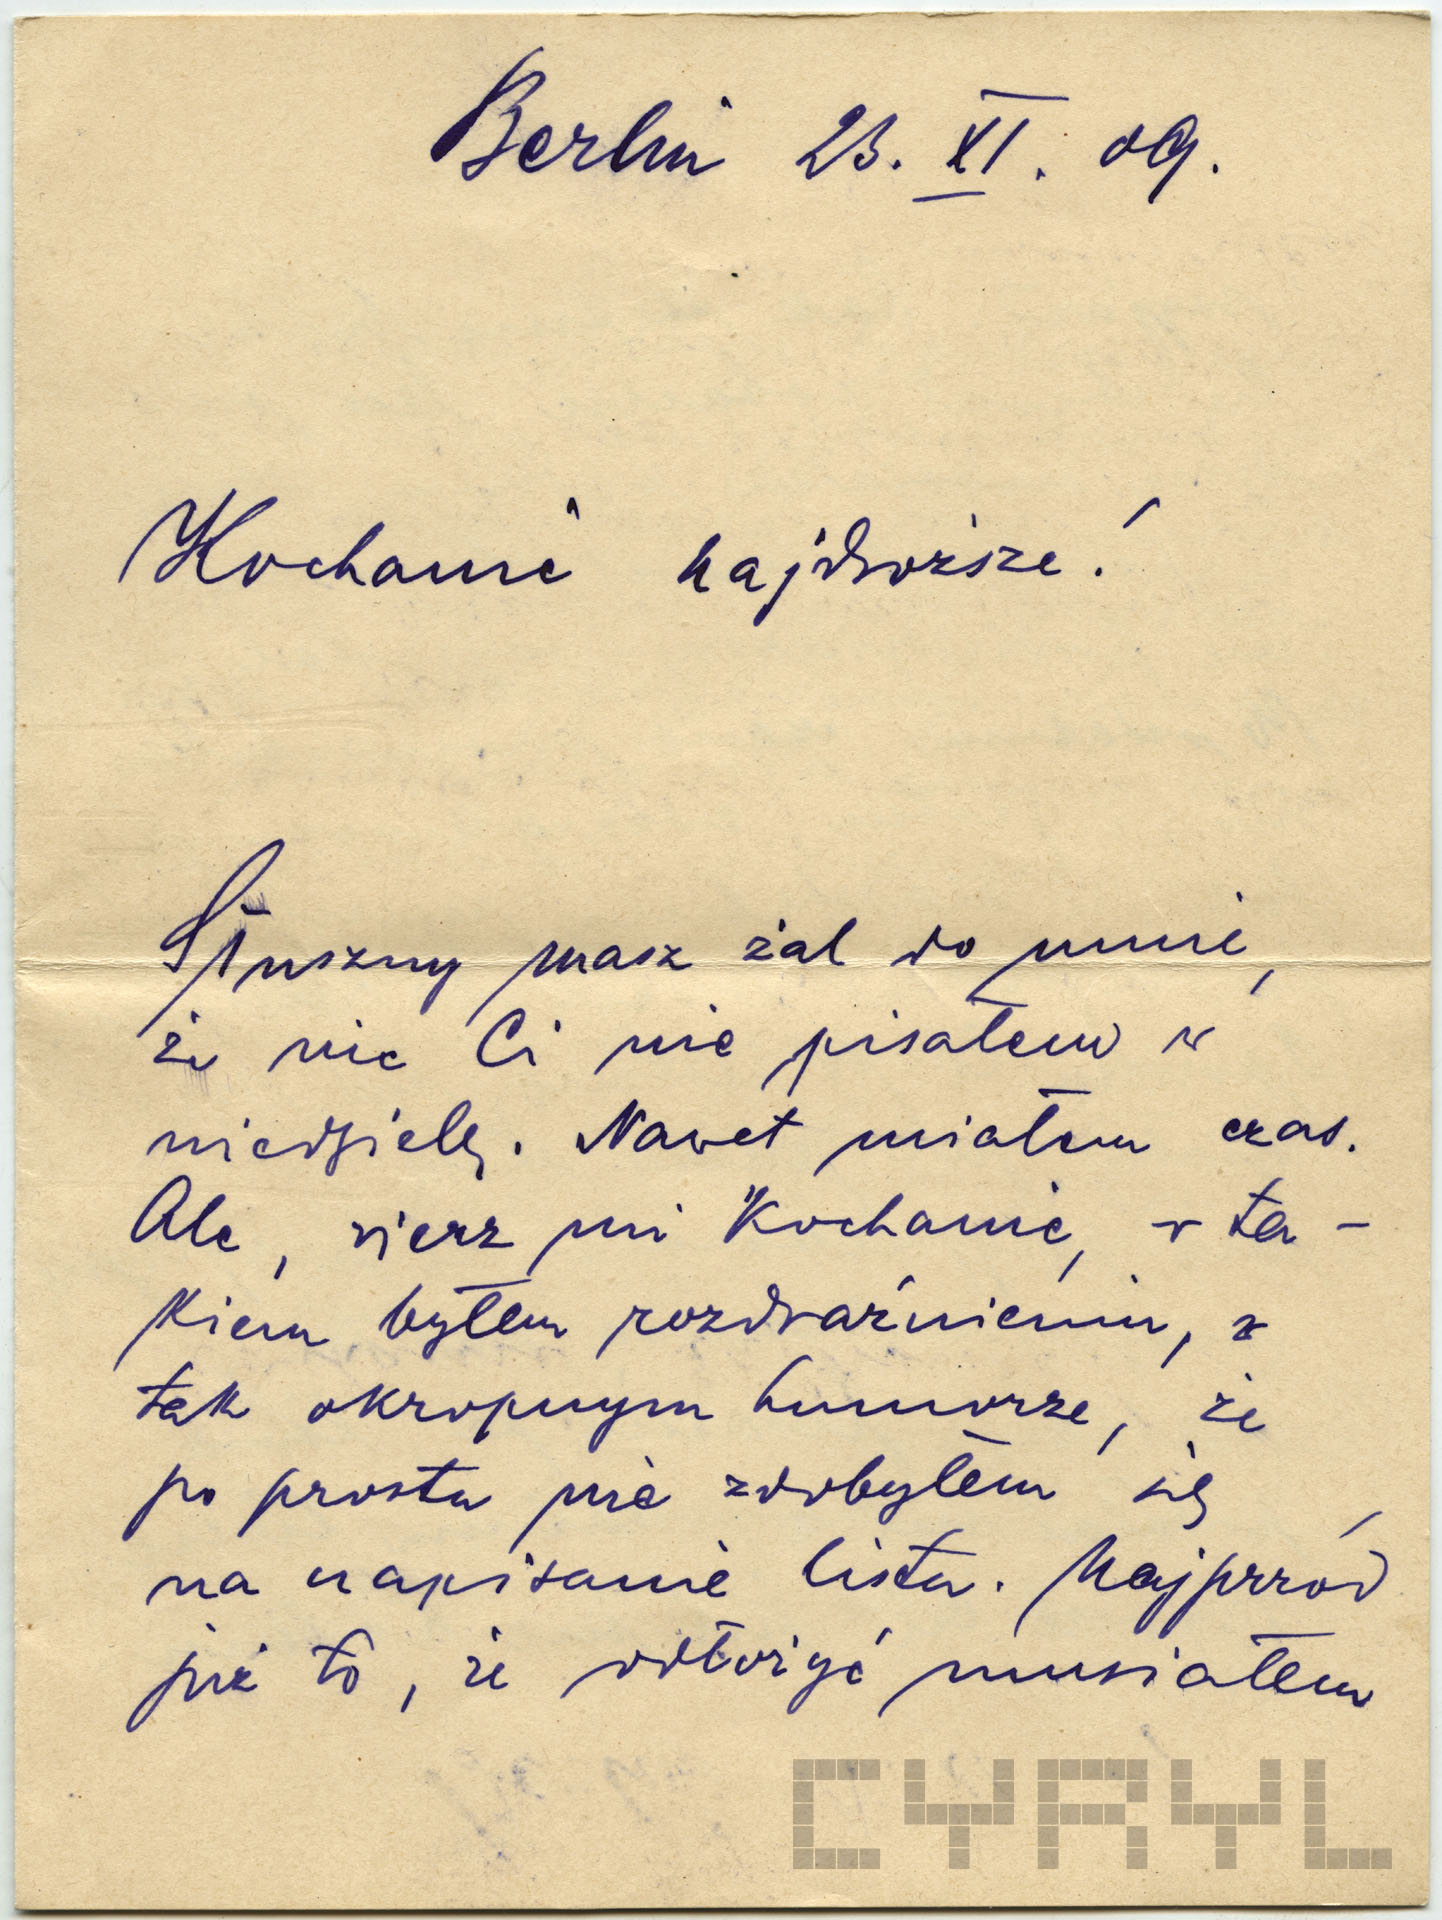 Berlin 23. XI. 09.
Kochanie najdroższe!
Słuszny masz żal do mnie,
że nic Ci nie pisałem w
niedzielę. Nawet miałem czas.
Ale, wierz mi Kochanie, w ta-
kiem byłem rozdrażnieniu, w
tak okropnym humorze, że
po prostu nie zdobyłem się
na napisanie listu. Najprzód
już to, że odłożyć musiałem
CYRYL